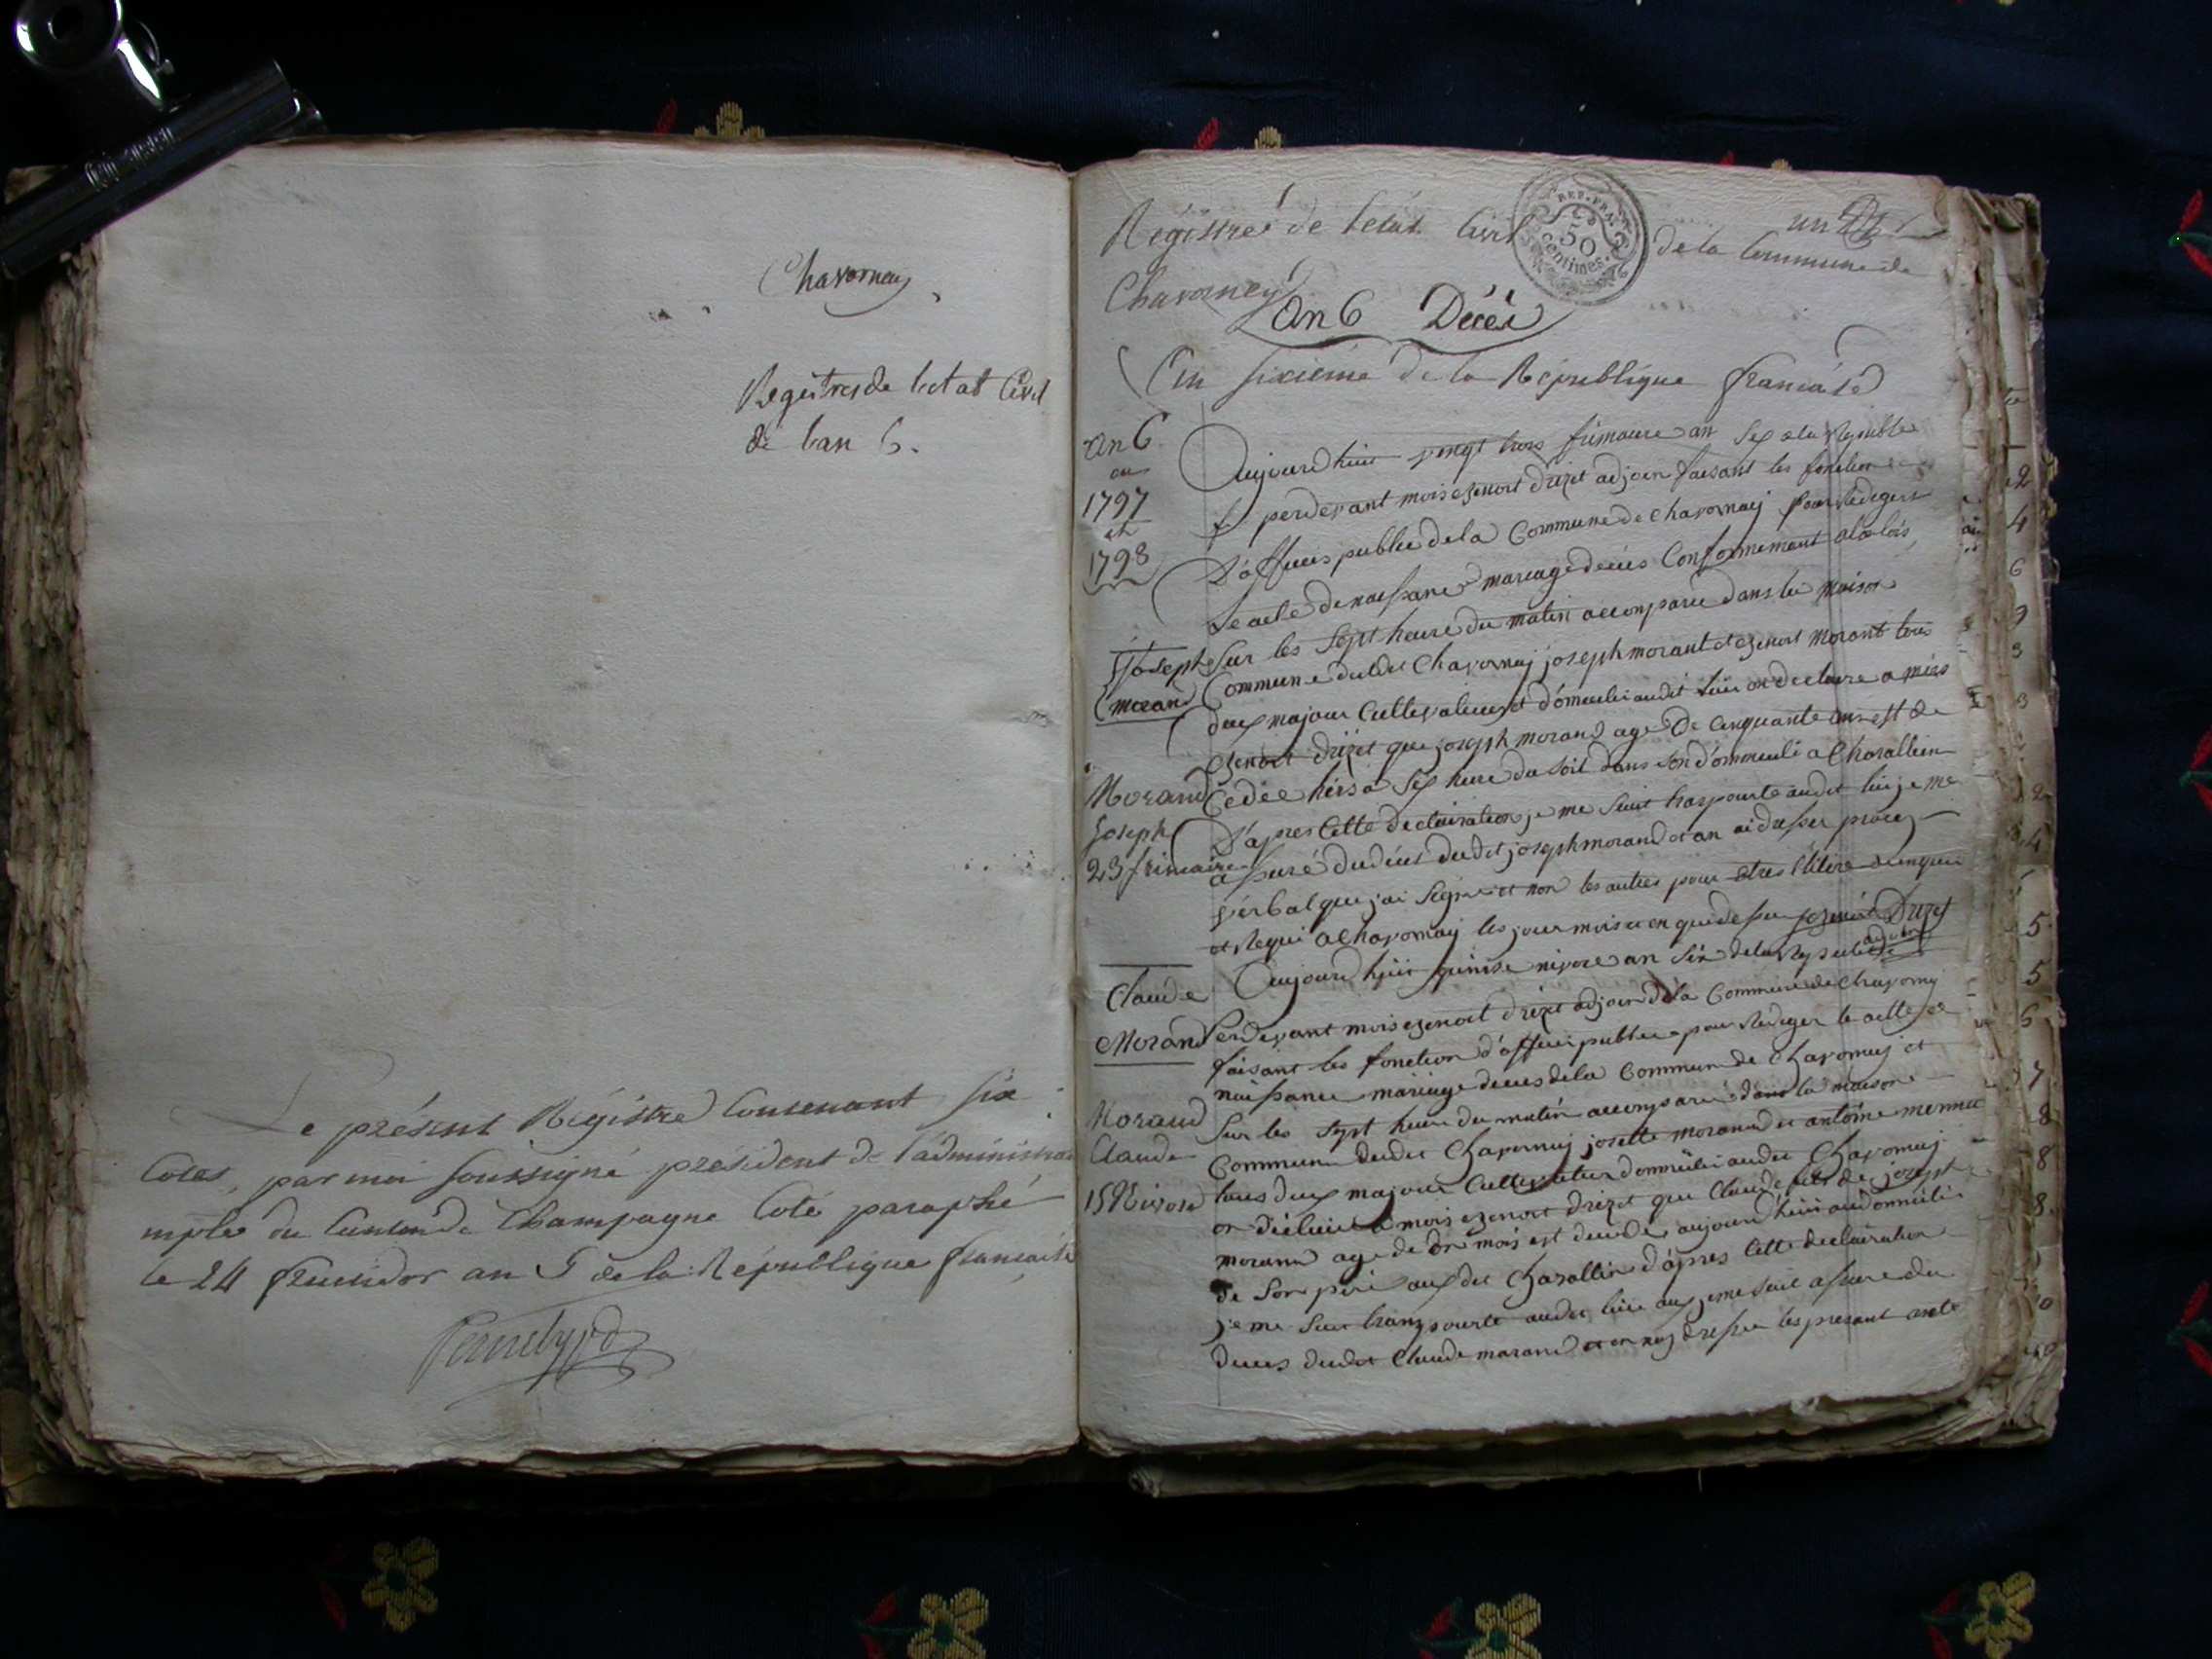 Chavornay
Registres de l'etat Civil
de l'an 6.
Le présent Régistre Contenant six
Cotes, par moi soussigné président de l'administra
mple du Canton de Champagne Coté paraphé
le 24 fructidor an 5 de la République francaise
un
Régistre de letat Civil de la Commune de
REP. FRA.
50
Centimes
Chavorney
An 6 Décès
L'an sixième de la République francaise
an 6
ou
1797
et
1798
Aujourdhuit vingt trois frimaire an six de la Republe
perdevant mois Benoit drizet adjoin faisant les fonction
D'officié publice de la Commune de Chavornay pour Rediger
Le acte de naissance mariage décès Conformement a la lois
Joseph
morand
Sur les Sept heure du matin accomparu dans la maison
Commune dudit Chavornay joseph morant et Benoit Morant tous
deux majour Cultivateur et domicilié audit lieu on declaré a mois
Benoit drizet que joseph morand agé De cinquante ans est de
Morand
Joseph
23 frimaire
Cedée hier a six heure du soit dans son dommicile a Charallin
D'apres Cette declairation je me suit transpourté audit lieu je me
assuré du déces dudit joseph morand et an ai dresser procez
vérbal que j'ai signé et non les autres pour etres illitéré enquis
et Requi a Chavornay les jour mois et en que dessu Benoit Drizet
adjoin
Claude
Morand
Aujourdhuit quinse nivose an six de la Republice
Perdevant mois Benoit drizet adjoin de la Commune de Chavorny
faisant les fonction d'officié publice pour Rediger le acte de
naissance mariage deces de la Commun de Chavornay et
Morand
Claude
15 Nivose
Sur les sept heure du matin accomparu dans la maison
Commune dudit Chavornay josette morand et antoine monnet
tous deux majour Cultivateur dommicilié audit Chavornay
on déclairé a mois Benoit drizet que Claude fils de joseph
morann age de mois est decedé aujourdhuit au dommicile
de Son père audit Charallin d'apres Cette declairation
je me suit transpourté audit lieu je me suit assuré du
deces dudit Claude morand et en dresser les presant acte